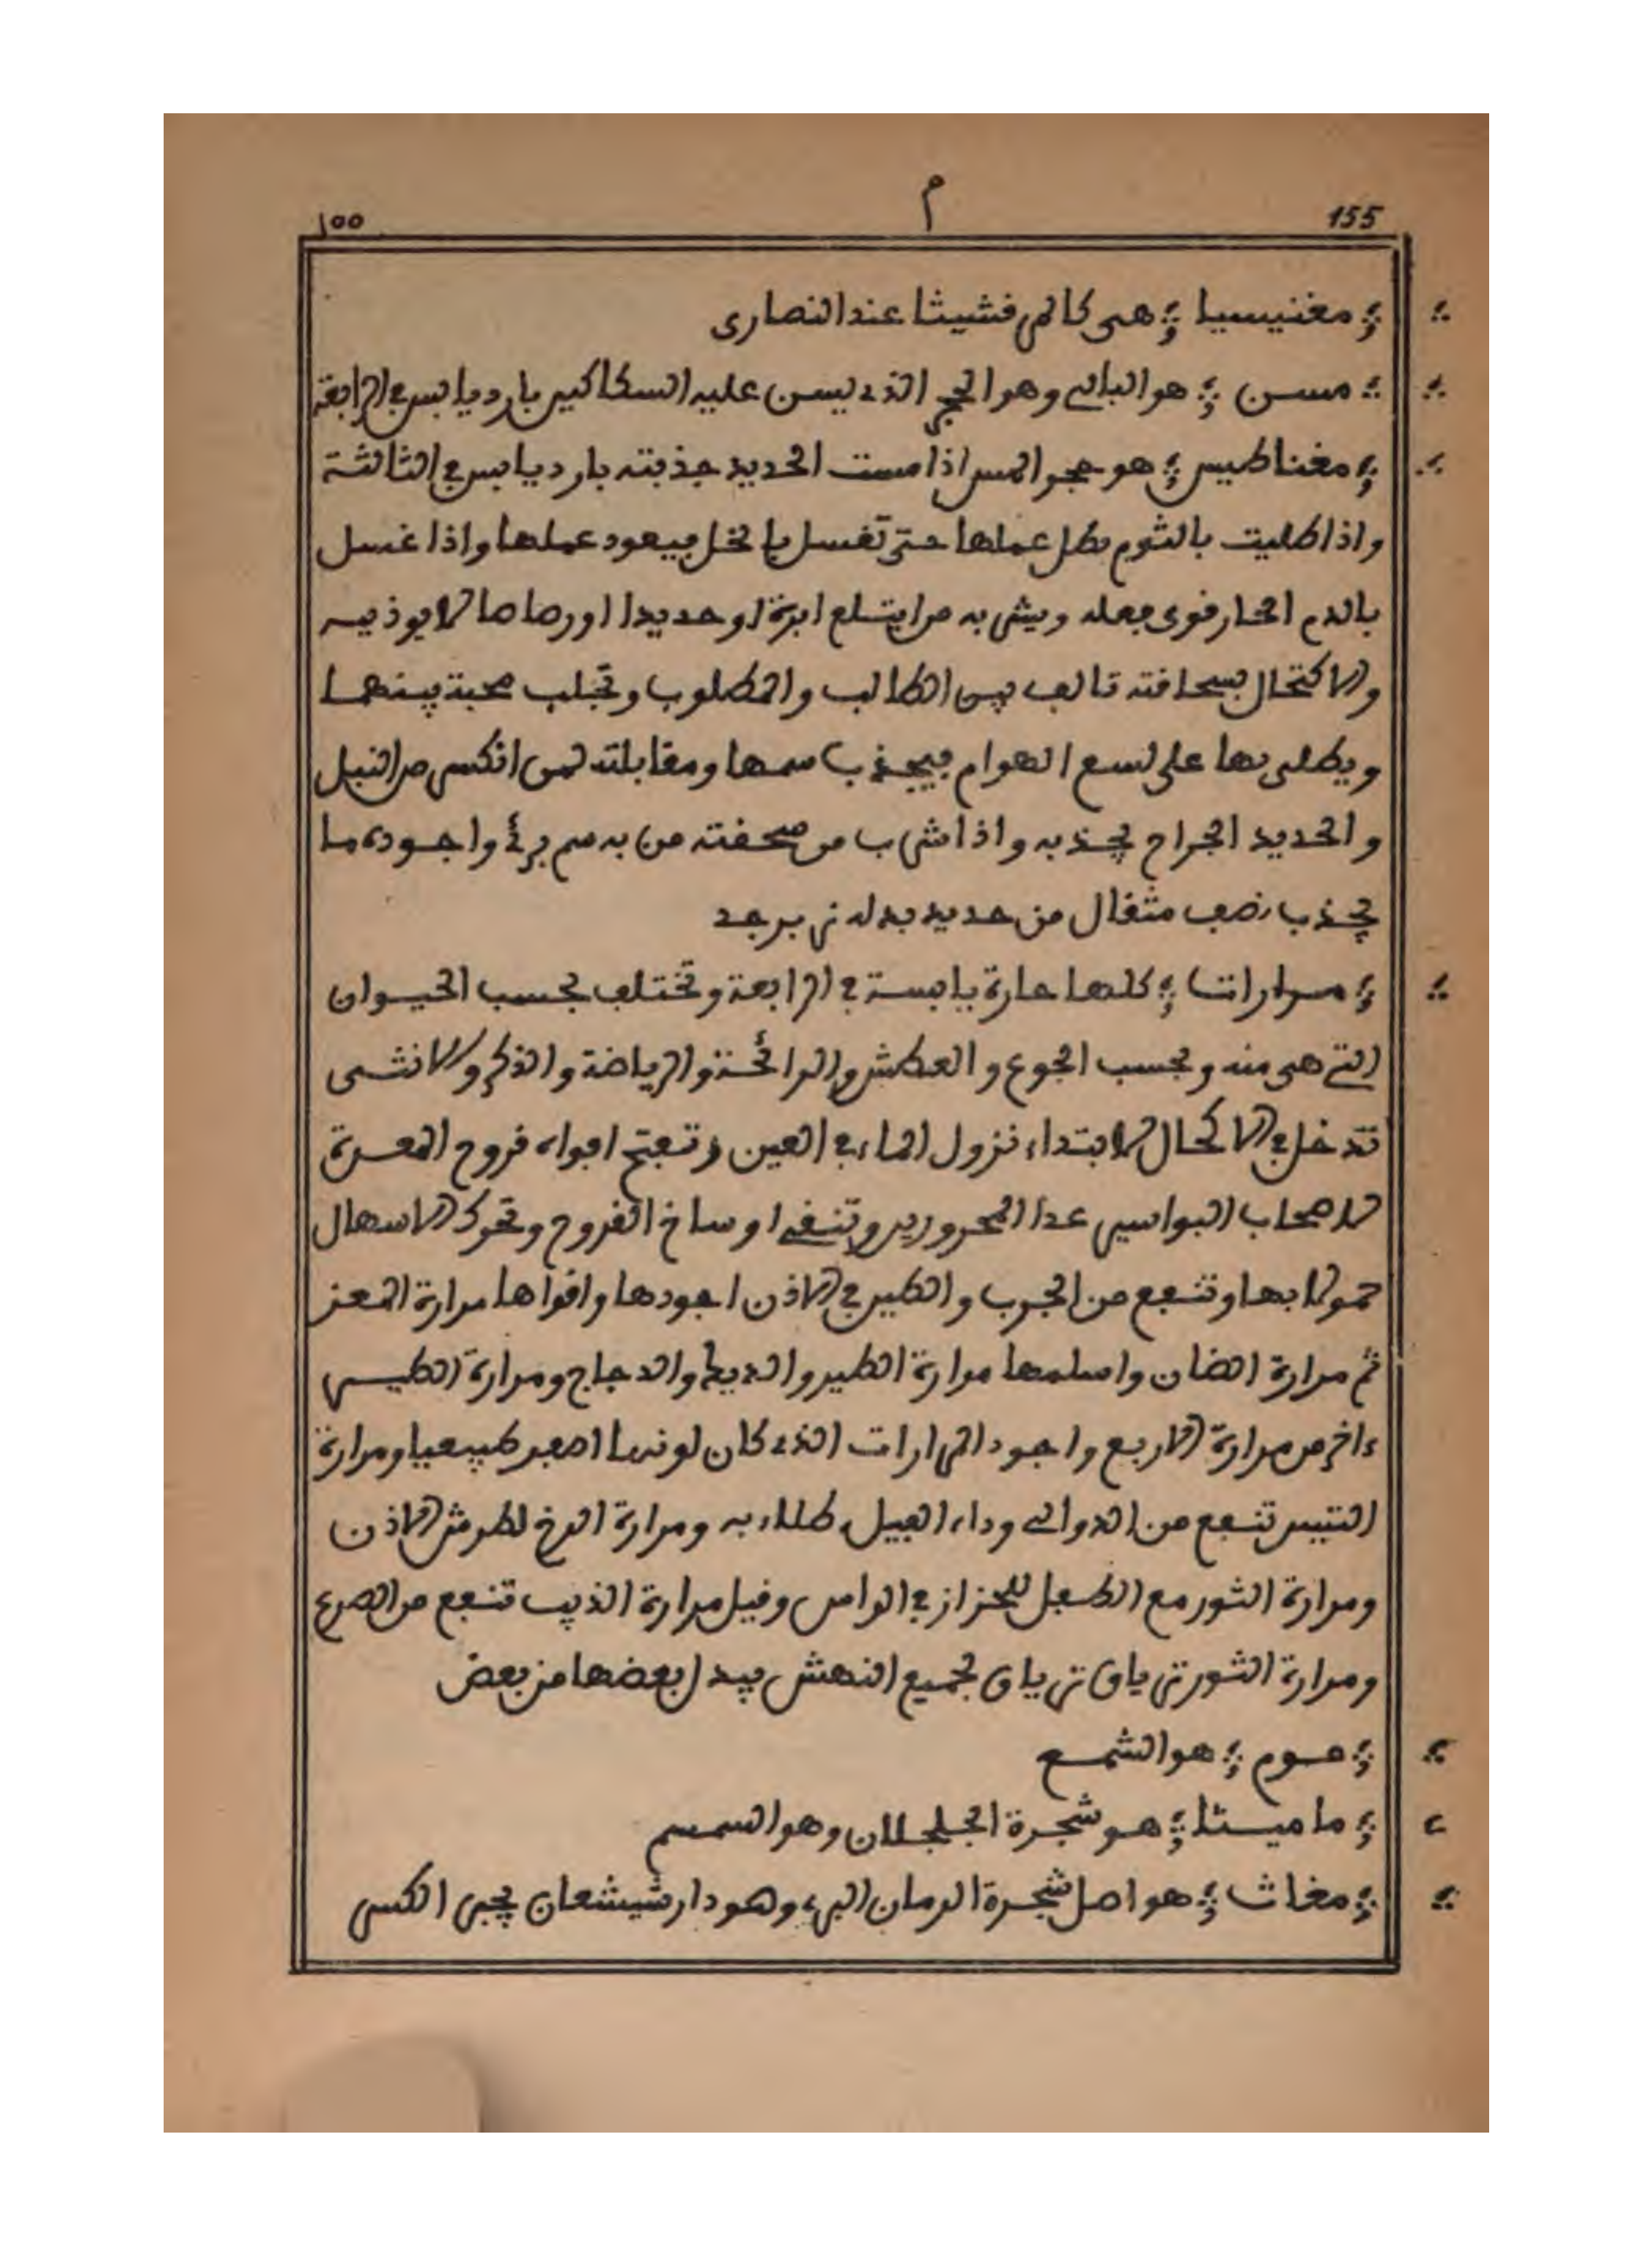 155 م ١٥٥
مغنيسيا هى كالمرقشيثا عند النصارى
مسن هو البالى وهو الحجر الذى يسن عليه السكاكير بارد يابس فى الرابعة
مغناطيس هو حجر المس اذا مست الحديد جذبته بارد يابس فى الثالثة
واذا طليت بالثوم بطل عملها حتى تغسل بالخل فيعود عملها واذا غسل
بالدم الحار قوى فعله ويشرب به من ابتلع ابرة او حديدا او رصاصا لا يوذيه
والاكتحال بسحاقته تالف بين الطالب والمطلوب وتجلب محبة بينهما
ويطلى بها على لسع الهوام فيجذب سمها ومقابلته لمن انكسر من النبل
والحديد الجراح يجذبه واذا شرب من سحقته من به سم برئ واجوده ما
يجذب نصف مثقال من حديد بدله زبرجد
مرارات كلها حارة يابسة فى الرابعة وتختلف بحسب الحيوان
التى هى منه وبحسب الجوع والعطش والرائحة والرياضة والذكر والانثى
تدخل فى الاكحال لابتداء نزول الماء فى العين وتفتح افواه قروح المعدة
لاصحاب البواسير عدا المحرورين وتنقى اوساخ القروح وتحرك الاسهال
حمولا بها وتنفع من الجرب والطير فى الاذن اجودها واقواها مرارة المعز
ثم مرارة الضان واسلمها مرارة الطير والديك والدجاج ومرارة الطير
ءاخر من مرارة الاربع واجود المرارات الذى كان لونها اصفر طبيعيا ومرارة
التيس تنفع من الدوالى وداء الفيل طلاء به ومرارة الرخ لطرش الاذن
ومرارة الثور مع الطفل للحزاز فى الراس وقيل مرارة الذيب تنفع من الصرع
ومرارة الثور ترياق ترياق لجميع النهش يبدل بعضها من بعض
موم هو الشمع
ماميثا هو شجرة الجلجلان وهو السمسم
مغاث هو اصل شجرة الرمان البرى وهو دار شيشعان يجبر الكسر